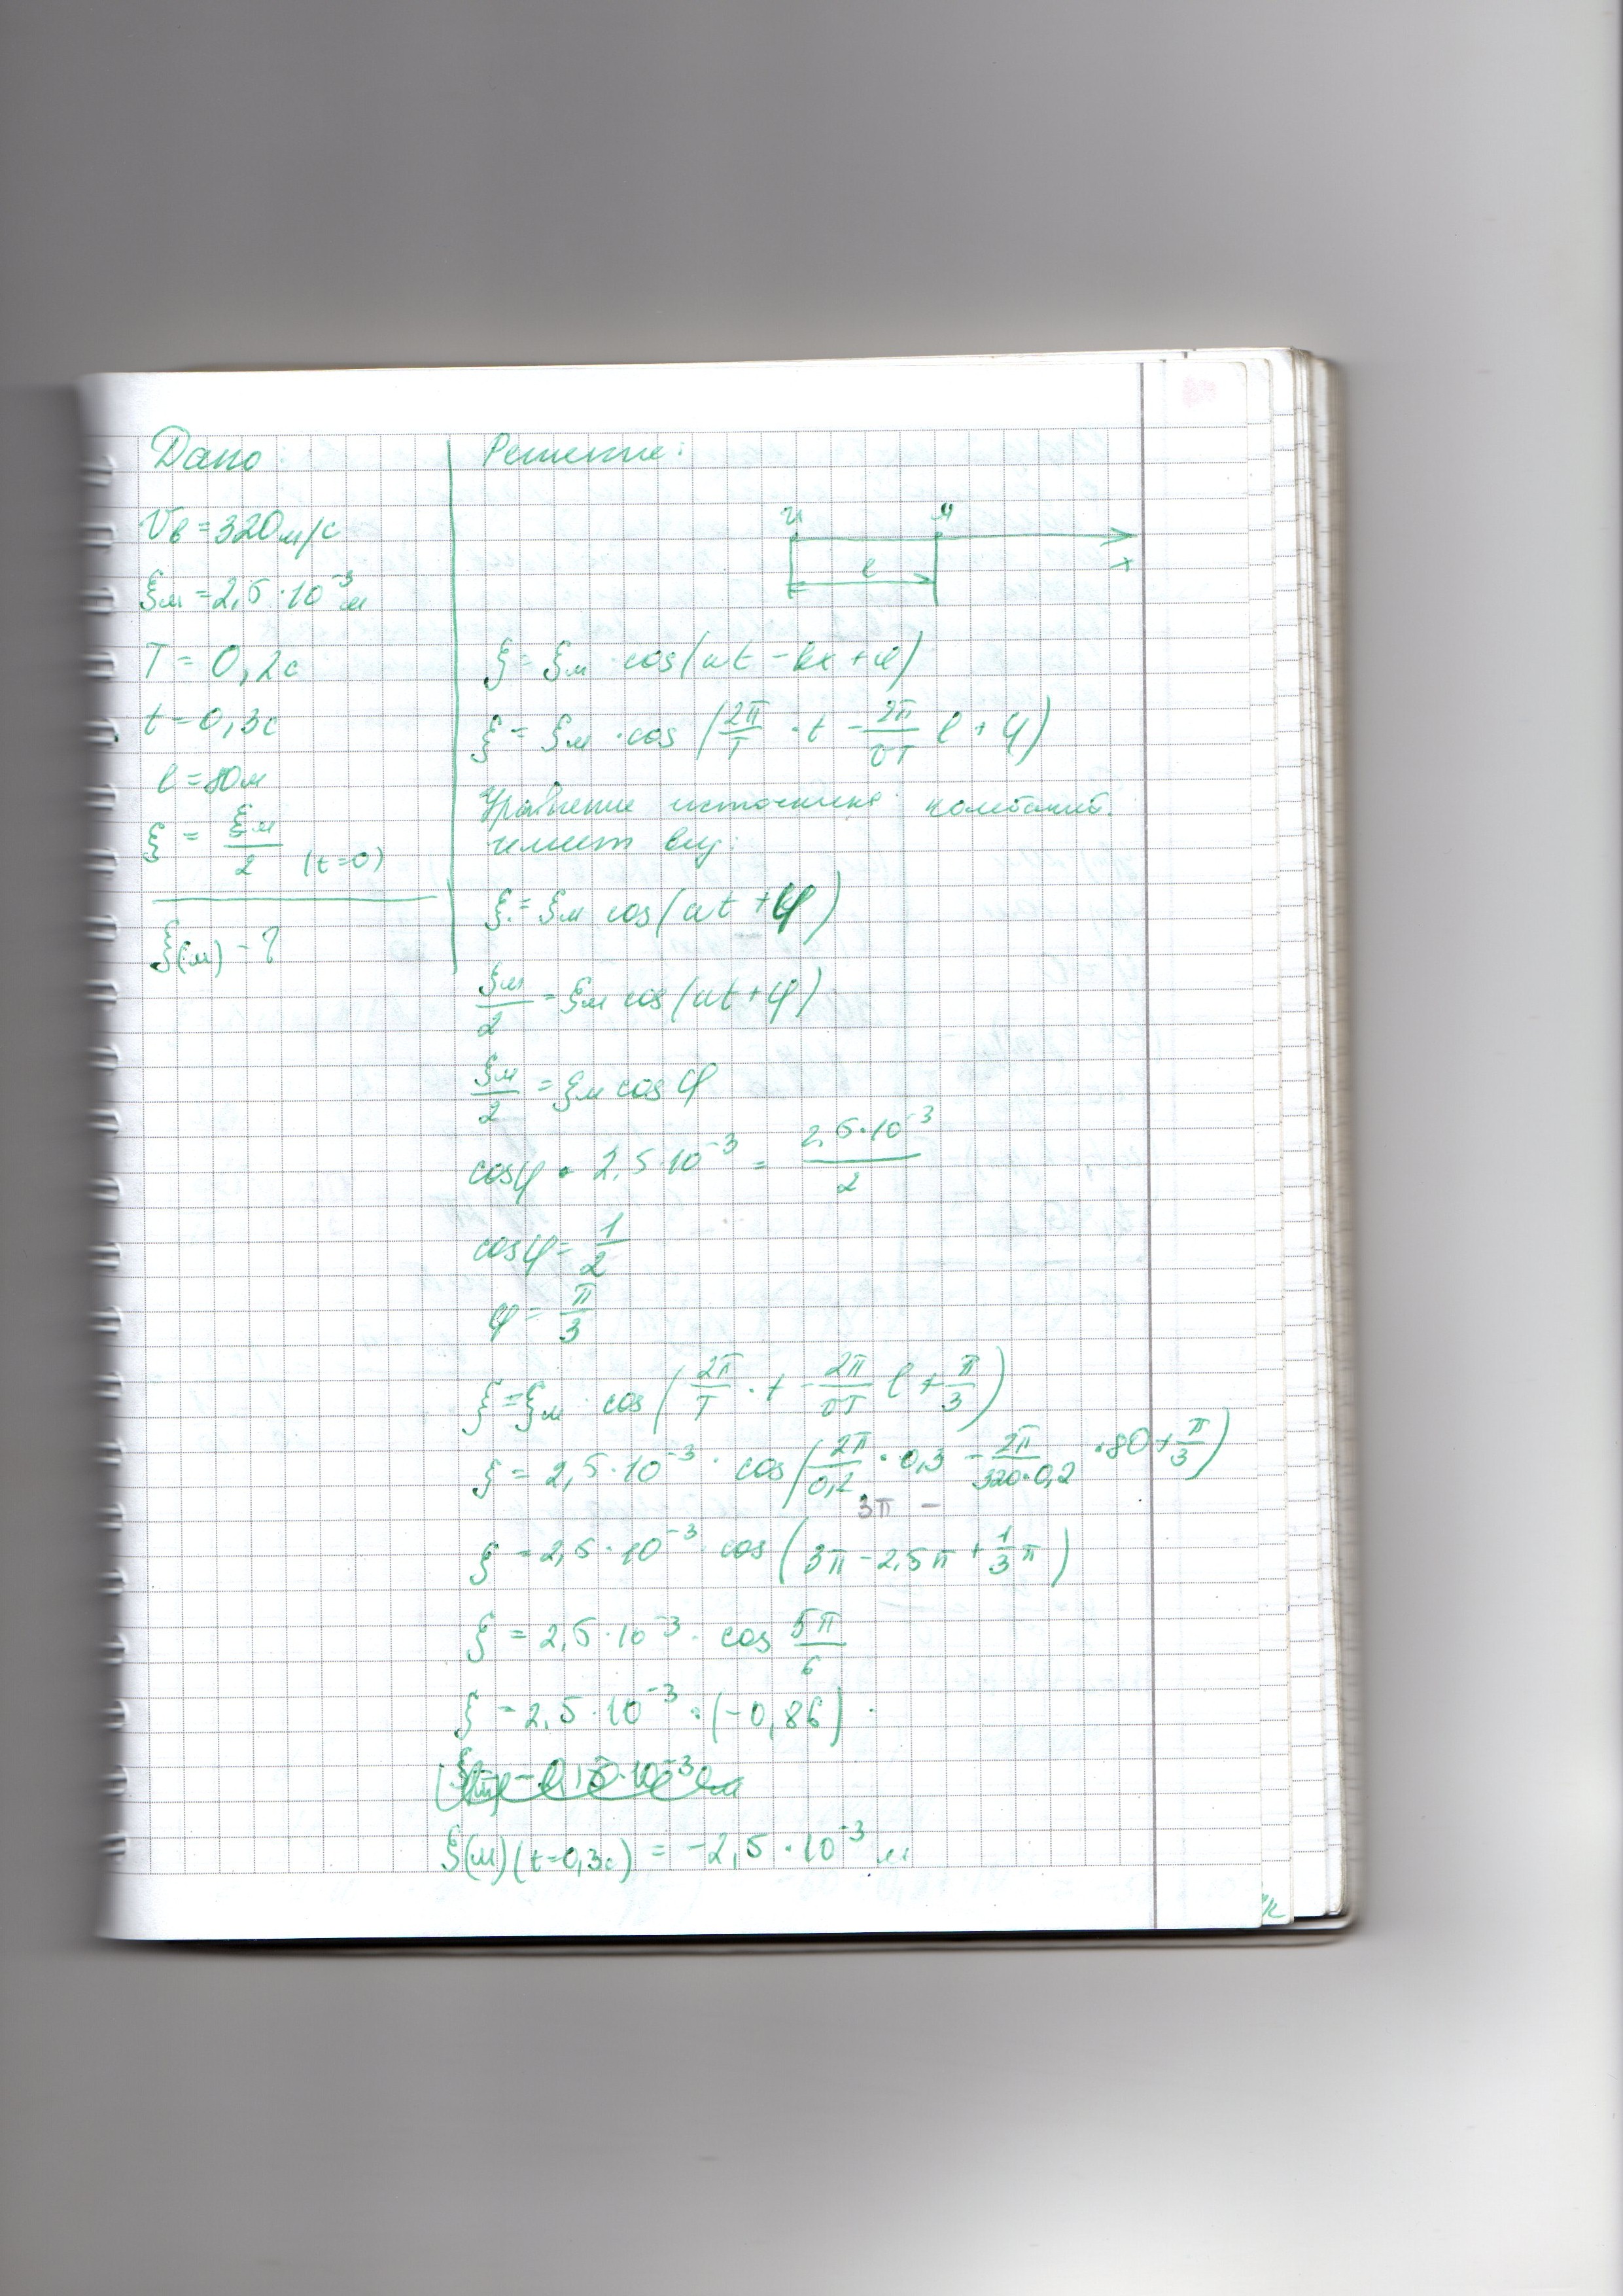 Дано:
Решение:
Vв = 320 м/с
ξм = 2,5 · 10⁻³ м
T = 0,2 с
t = 0,3 с
l = 80 м
ξ = ξм/2 (t=0)
ξ(м) - ?
и м
l x
ξ = ξм · cos(ωt - kx + φ)
ξ = ξм · cos(2π/T · t - 2π/vT l + φ)
Уравнение источника колебаний
имеет вид:
ξ = ξм cos(ωt + φ)
ξм/2 = ξм cos(ωt + φ)
ξм/2 = ξм cos φ
cos φ · 2,5 · 10⁻³ = 2,5 · 10⁻³/2
cos φ = 1/2
φ = π/3
ξ = ξм · cos(2π/T · t - 2π/vT l + π/3)
ξ = 2,5 · 10⁻³ · cos(2π/0,2 · 0,3 - 2π/320·0,2 · 80 + π/3)
3π -
ξ = 2,5 · 10⁻³ · cos(3π - 2,5π + 1/3 π)
ξ = 2,5 · 10⁻³ · cos 5π/6
ξ = 2,5 · 10⁻³ · (-0,86)
ξ(м)(t=0,3с) = -2,5 · 10⁻³ м